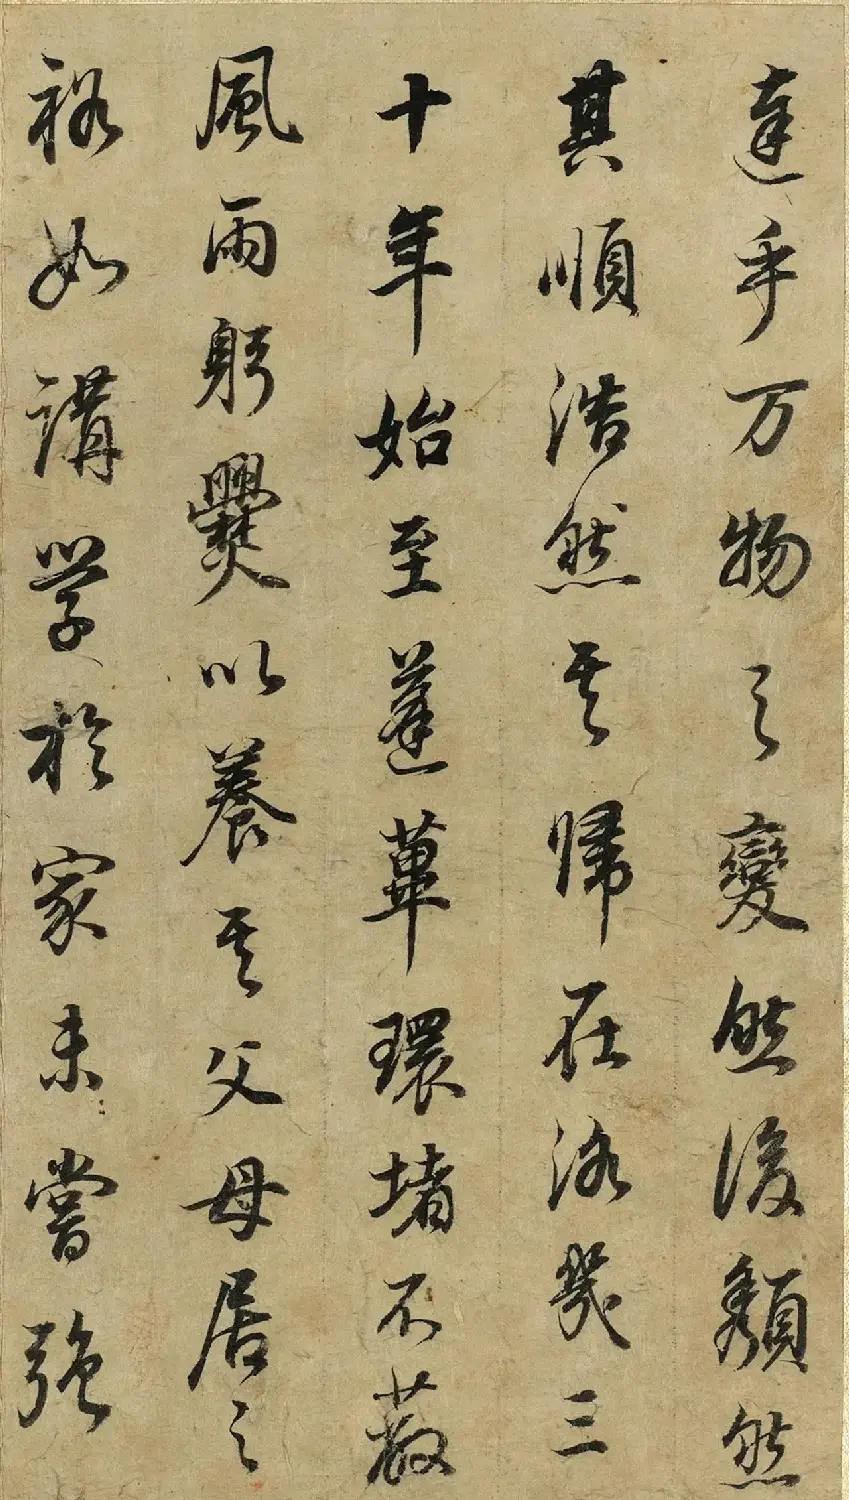 達乎万物之變然後頹然
其順浩然其歸在洛幾三
十年始至蓬蓽環堵不蔽
風雨躬爨以養其父母居之
裕如講学於家未嘗強